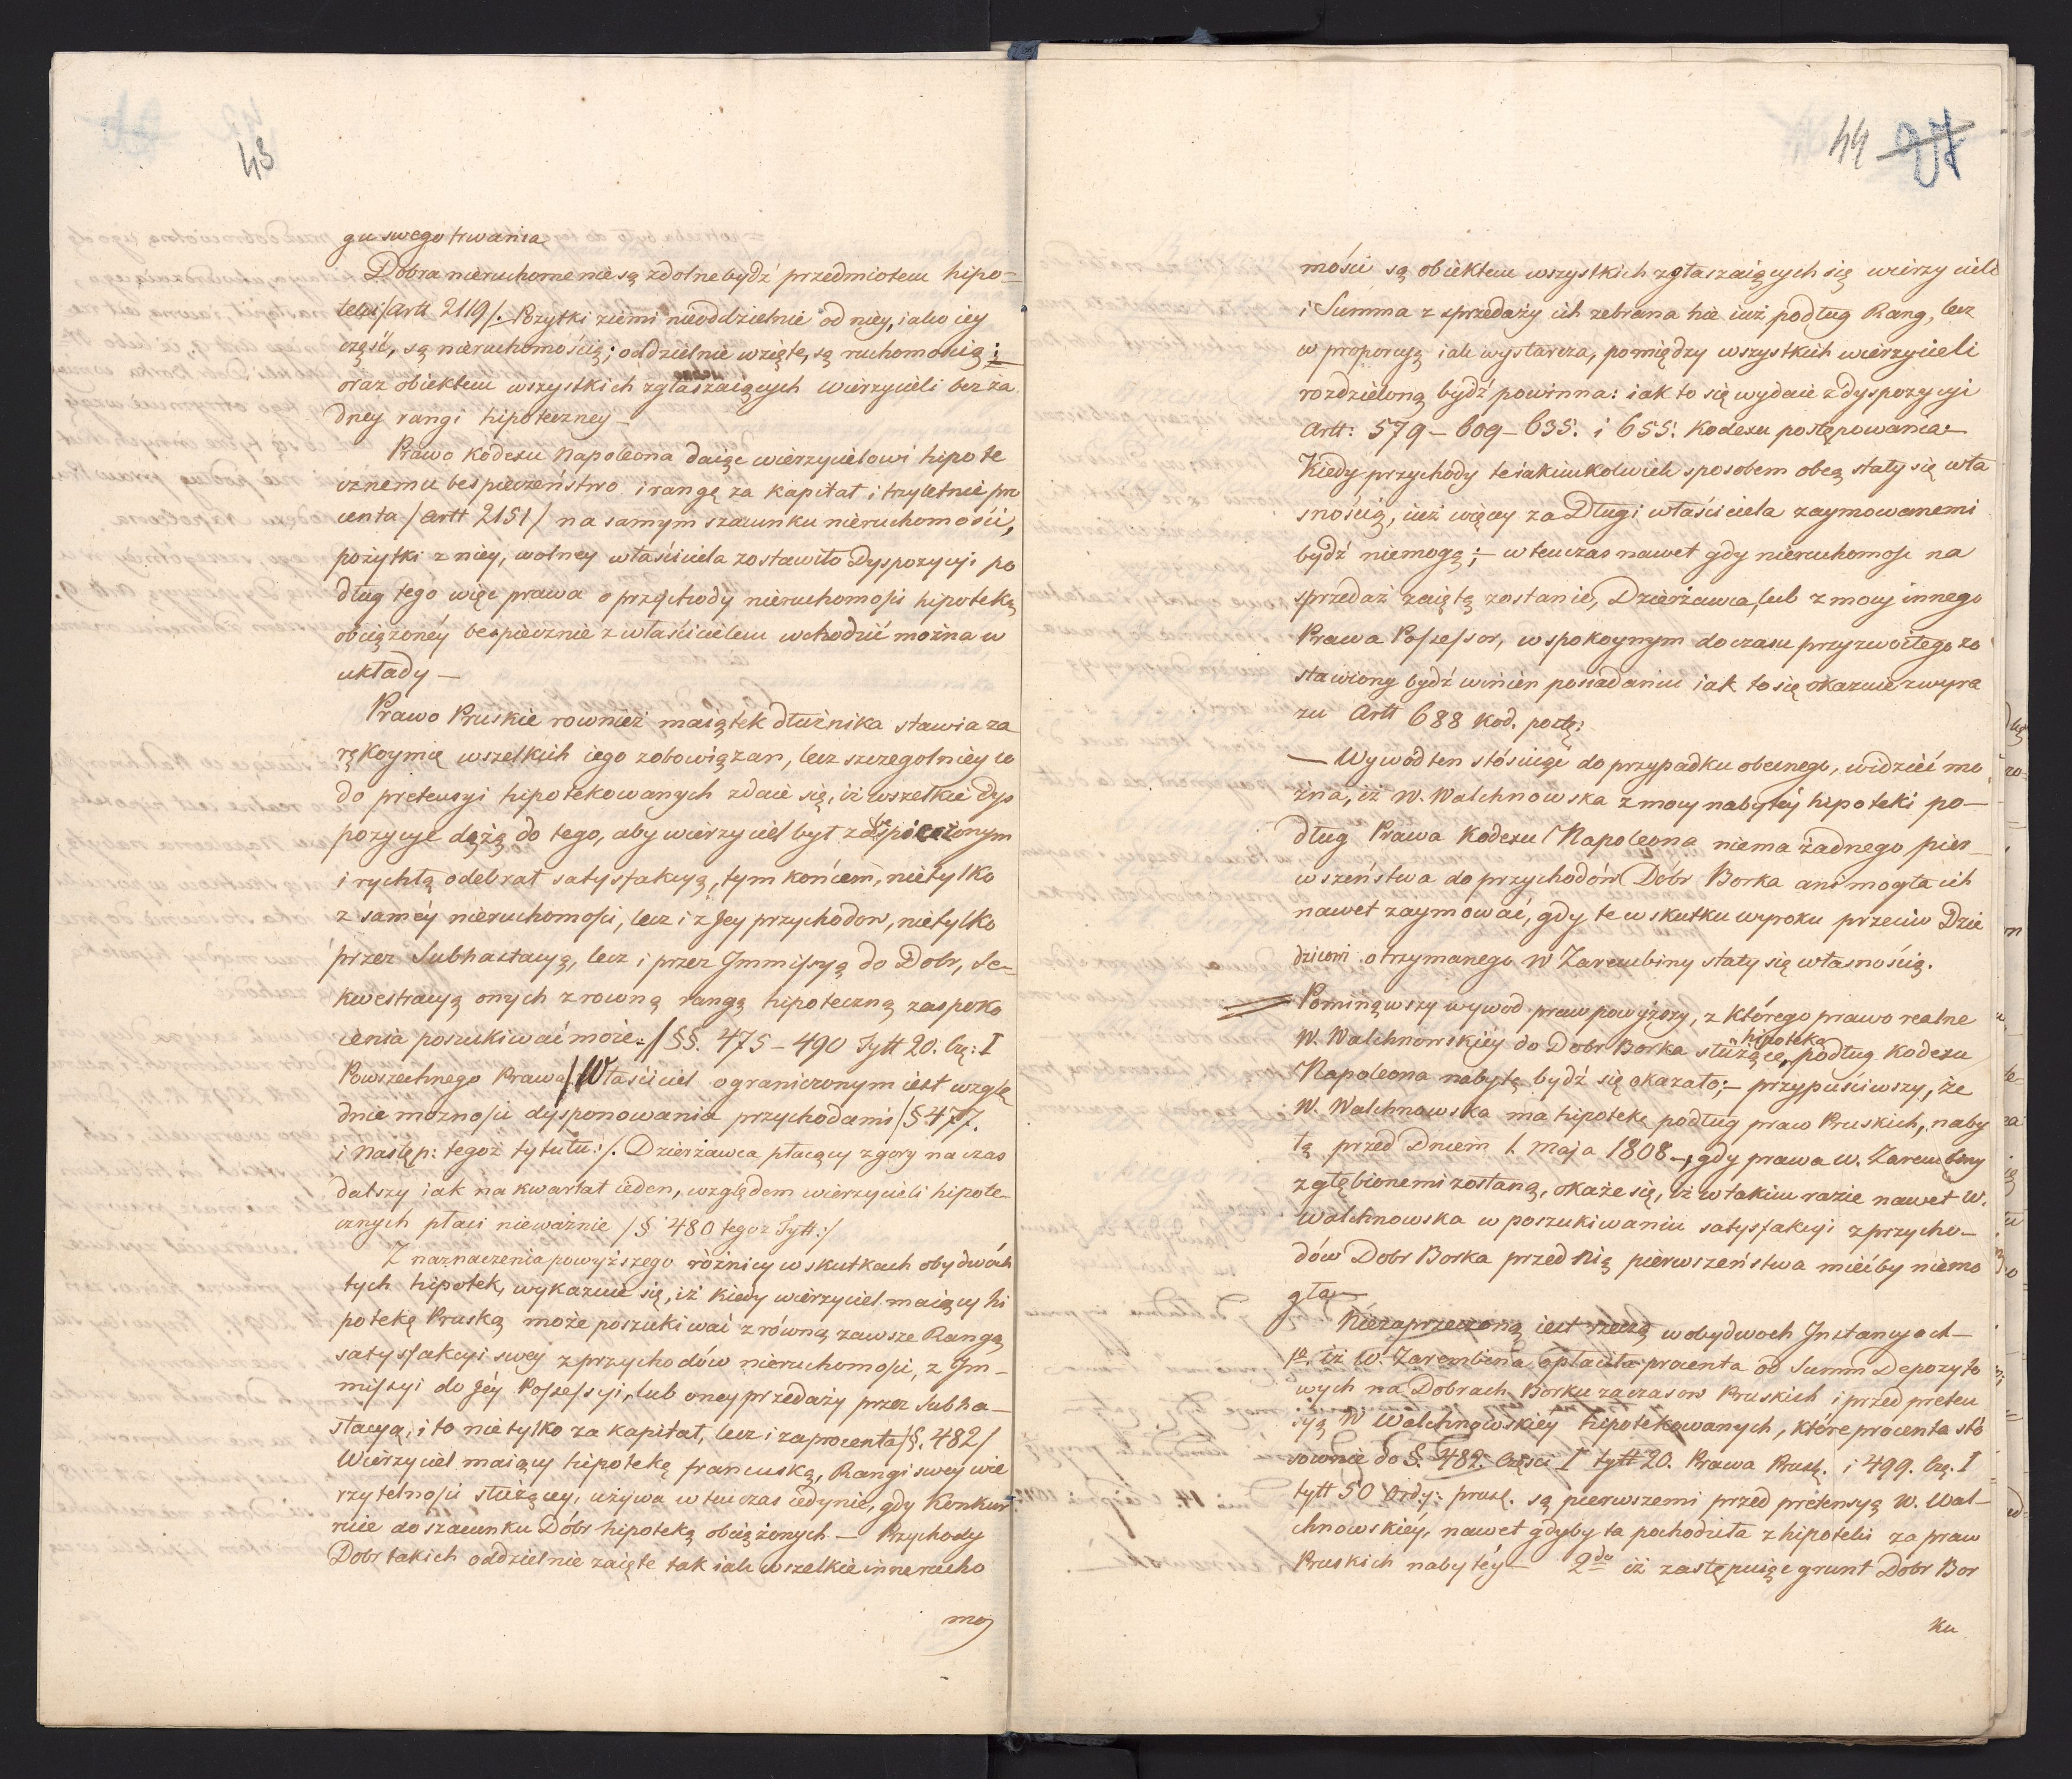 43
gu swego trwania
Dobra nieruchome nie są zdolne bydź przedmiotem hipo=
teki /artt 2119/. Pożytki ziemi nieoddzielnie od niey, iako iey
część, są nieruchomością; oddzielnie wzięte, są ruchomością;
oraz obiektem wszystkich zgłaszaiących wierzycieli bez ża
dney rangi hipoteczney –
Prawo Kodexu Napoleona daiąc wierzycielowi hipote
cznemu bespieczeństwo i rangę za kapitał i trzyletnie pro
centa /artt 2151/ na samym szacunku nieruchomości,
pożytki z niey, wolney właściciela zostawiło Dyspozycyi po
dług tego więc prawa o przychody nieruchomości hipoteką
obciążonéy bespiecznie z właścicielem wchodzić można w
układy –
Prawo Pruskie rownież maiątek dłużnika stawia za
rękoymię wszelkich iego zobowiązan, lecz szczegolniey co
do pretensyi hipotekowanych zdaie się, iż wszelkie dys
pozycye dążą do tego, aby wierzyciel był zabespieczonym
i rychłą odebrał satysfakcyą, tym końcem, nietylko
z saméy nieruchomości, lecz i z Jey przychodow, nietylko
przez Subhastacyą, lecz i przez Immissyą do Dobr, Se=
kwestracyą onych z rowną rangą hipoteczną zaspoko
ienia poszukiwać może. /§§. 475 – 490 Tytt 20. Czę: I
Powszechnego Prawa/ Właściciel ograniczonym iest wzglę
dnie możności dysponowania przychodami /§. 477.
i następ: tegoż tytułu:/. Dzierżawca płacący z gory na czas
dalszy iak na kwartał ieden, względem wierzycieli hipote=
cznych płaci nieważnie /§ 480 tegoż Tytt:/
Z naznaczenia powyższego różnicy w skutkach obydwóch
tych hipotek, wykazuie się, iż kiedy wierzyciel maiący hi
potekę Pruską może poszukiwać z równą zawsze Rangą
satysfakcyi swey z przychodów nieruchomości, z Im=
missyi do Jéy Possessyi, lub oney przedaży przez Subha=
stacyą, i to nie tylko za kapitał, lecz i za procenta /§. 482/
Wierzyciel maiący hipotekę francuską, Rangi swey wie
rzytelności służącey, używa w tenczas iedynie, gdy Konkur
ruie do szacunku Dóbr hipoteką obciążonych – Przychody
Dobr takich oddzielnie zaięte tak iak wszelkie inne rucho
mo
44 27
mości są obiektem wszystkich zgłaszaiących się wierzycieli
i Summa z sprzedaży ich zebrana nie iuż podług Rang, lecz
w proporcyą iak wystarcza, pomiędzy wszystkich wierzycieli
rozdzieloną bydź powinna: iak to się wydaie z dyspozycyi
Artt: 579 – 609 – 635. i 655. Kodexu postępowania –
Kiedy przychody te iakimkolwiek sposobem obcą stały się wła
snością, iuż więcy za Długi właściciela zaymowanemi
bydź niemogą; – w tenczas nawet gdy nieruchomość na
sprzedaż zaiętą zostanie, Dzierżawca, lub z mocy innego
Prawa Possessor, w spokoynym do czasu przyzwoitego zo
stawiony bydź winien posiadaniu iak to się okazuie z wyra
zu Artt 688 Kod. postę:
– Wywód ten stósuiąc do przypadku obecnego, widzieć mo
żna, iż W. Walchnowska z mocy nabytéy hipoteki po=
dług Prawa Kodexu Napoleona niema żadnego pier=
wszeństwa do przychodów Dobr Borka ani mogła ich
nawet zaymować, gdy te w skutku wyroku przeciw Dzie
dzicowi otrzymanego W Zarembiny stały się własnością.
Pominąwszy wywod praw powyższy, z którego prawo realne
W. Walchnowskiéy do Dobr Borka służące, hipoteką podług Kodexu
Napoleona nabytą bydź się okazało; – przypuściwszy, że
W. Walchnowska ma hipotekę podług praw Pruskich, naby
tą przed Dniem 1 Maja 1808 –, gdy prawa W. Zarembiny
zgłębionemi zostaną, okaże się, iż w takim razie nawet W.
Walchnowska w poszukiwaniu satysfakcyi z przycho=
dów Dobr Borka przed Nią pierwszeństwa mieć by niemo
gła –
Niezaprzeczoną iest rzeczą w obydwoch Instancyach –
1o. iż W. Zarembina opłaciła procenta od Summ Depozyto
wych na Dobrach Borku za czasow Pruskich i przed preten
syą W Walchnowskiéy hipotekowanych, które procenta stó
sownie do §. 482. Części I tytt 20. Prawa Prusk. i 499. Czę. I
tytt 50 Ordy: prusk. są pierwszemi przed pretensyą W. Wal=
chnowskiéy, nawet gdyby ta pochodziła z hipoteki za praw
Pruskich nabytéy – 2do iż zastępuiąc grunt Dobr Bor
ku